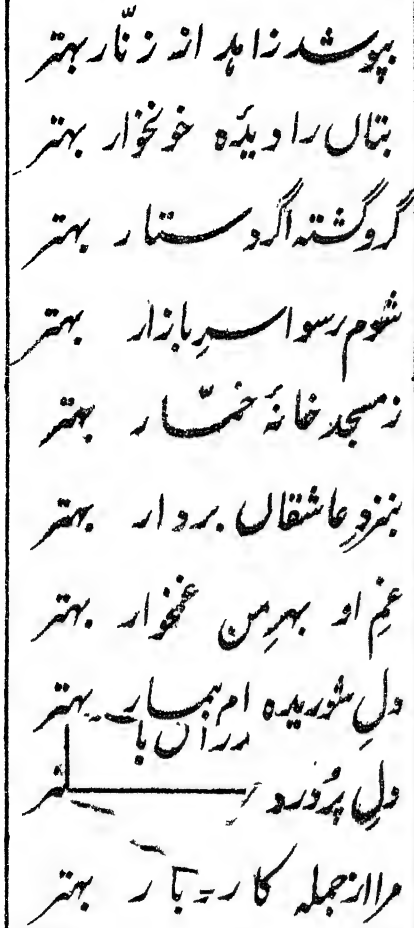 بپوشد زاهد از زنّار بہتر
بتاں را دیدۂ خونخوار بہتر
گرو گشتہ اگر دستار بہتر
شوم رسوا سرِ بازار بہتر
ز مسجد خانۂ خمّار بہتر
بنزدِ عاشقاں بردار بہتر
غمِ او بہرِ من غمخوار بہتر
دلِ شوریدہ ام بیمار بہتر
دلِ پُر درد
مرا از جملہ کار بہتر